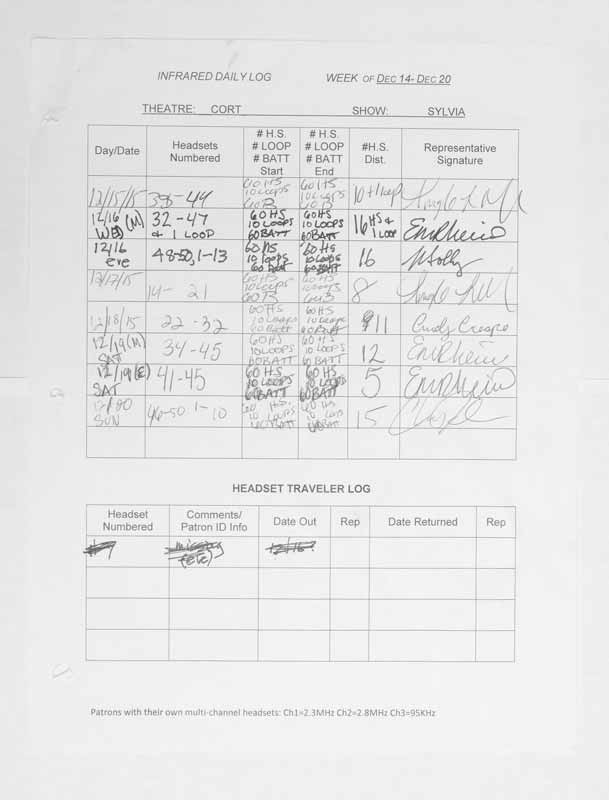 INFRARED DAILY LOG WEEK OF DEC 14- DEC 20
THEATRE: CORT SHOW: SYLVIA
Day/Date Headsets Numbered # H.S. # LOOP # BATT Start # H.S. # LOOP # BATT End #H.S. Dist. Representative Signature
12/15/15 38-44 60 HS 10 LOOPS 60 B 60 HS 10 LOOPS 60 B 10 + 1 loop
12/16 (M) WED 32-47 & 1 LOOP 60 HS 10 LOOPS 60 BATT 60 HS 10 LOOPS 60 BATT 16 HS & 1 LOOP
12/16 eve 48-50, 1-13 60 HS 10 LOOPS 60 BATT 60 HS 10 LOOPS 60 BATT 16
12/17/15 14- 21 60 HS 10 LOOPS 60 B 60 HS 10 LOOPS 60 B 8
12/18/15 22-32 60 HS 10 Loops 60 BATT 60 HS 10 Loops 60 BATT 11
12/19 (M) SAT 34-45 60 HS 10 LOOPS 60 BATT 60 HS 10 LOOPS 60 BATT 12
12/19 (E) SAT 41-45 60 HS 10 LOOPS 60 BATT 60 HS 10 LOOPS 60 BATT 5
12/20 SUN 46-50 1-10 60 H.S. 10 LOOPS 60 BATT 60 HS 10 LOOPS 60 BATT 15
HEADSET TRAVELER LOG
Headset Numbered Comments/ Patron ID Info Date Out Rep Date Returned Rep
#7 missing (eve) 12/16?
Patrons with their own multi-channel headsets: Ch1=2.3MHz Ch2=2.8MHz Ch3=95KHz